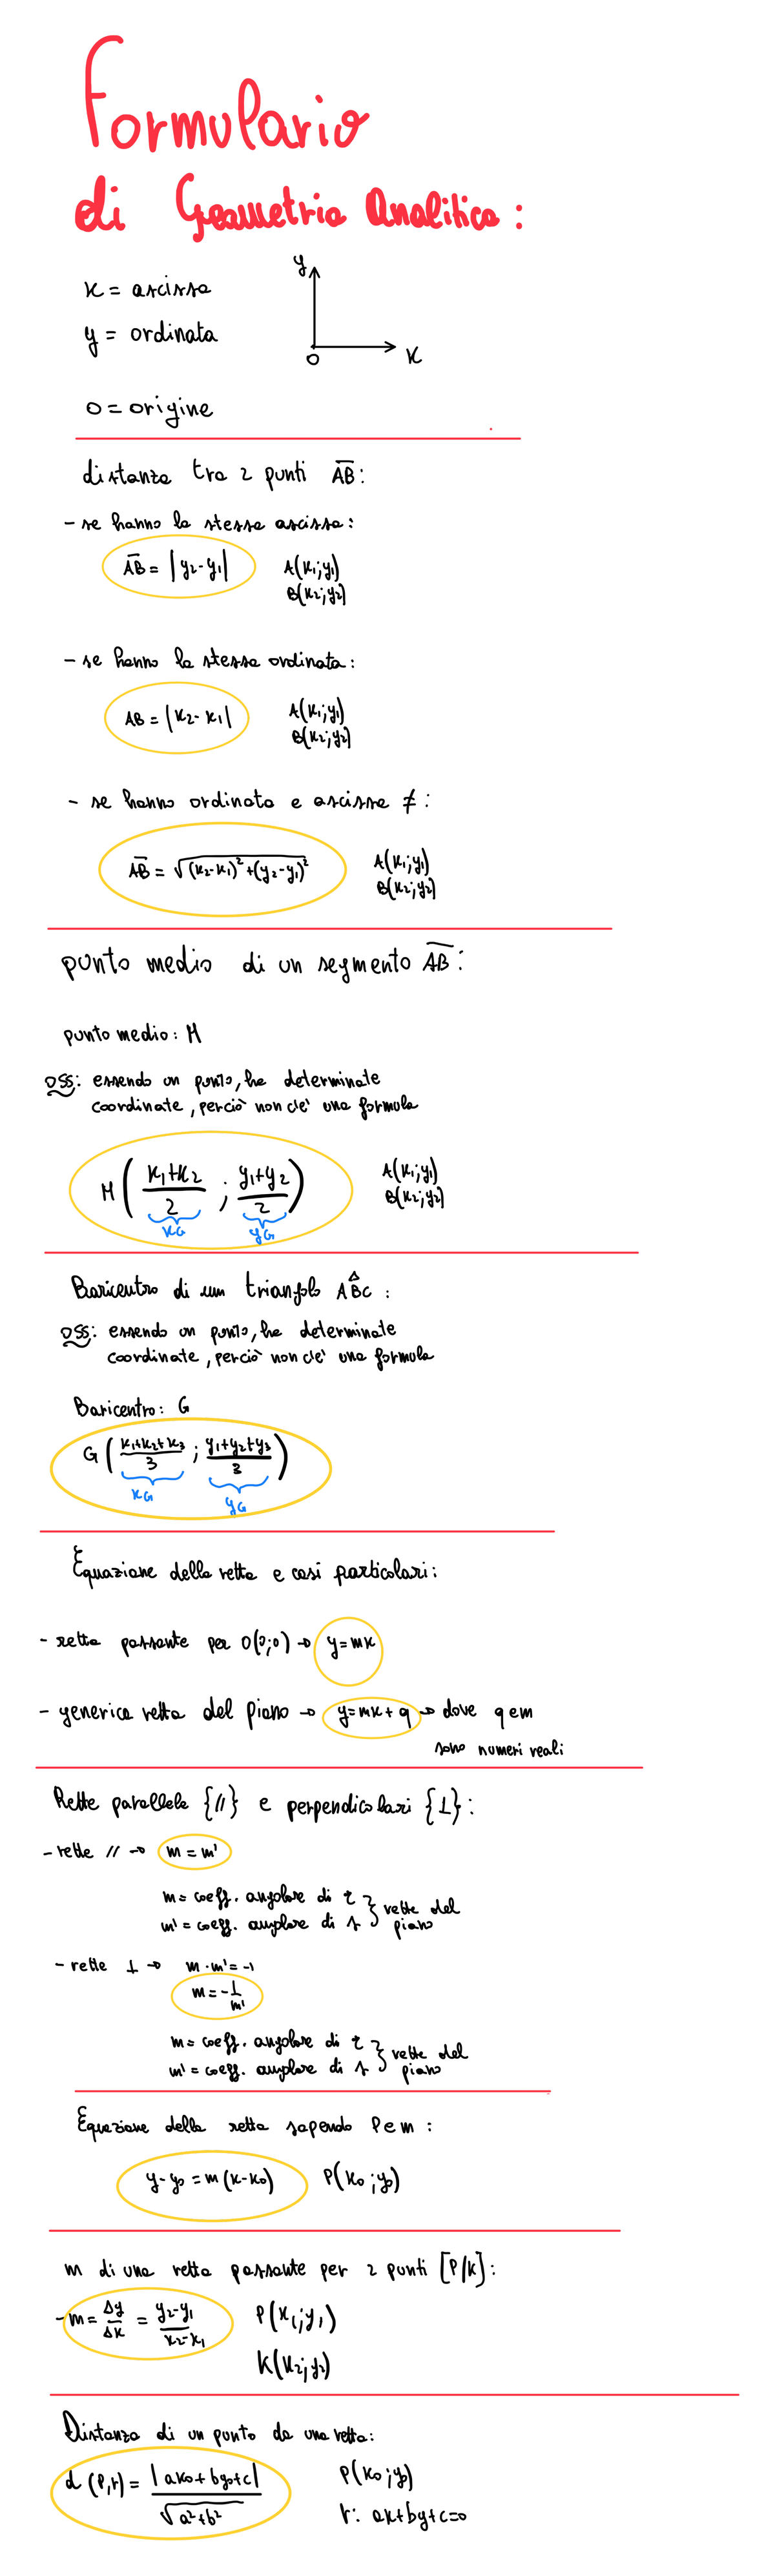 Formulario
di Geometria Analitica:
x = ascissa
y = ordinata
y
x
O
O = origine
distanza tra 2 punti A̅B̅:
- se hanno la stessa ascissa:
A̅B̅ = |y₂-y₁|
A(x₁;y₁)
B(x₂;y₂)
- se hanno la stessa ordinata:
AB = |x₂-x₁|
A(x₁;y₁)
B(x₂;y₂)
- se hanno ordinata e ascissa ≠:
A̅B̅ = √((x₂-x₁)²+(y₂-y₁)²)
A(x₁;y₁)
B(x₂;y₂)
punto medio di un segmento A̅B̅:
punto medio: M
OSS: essendo un punto, ha determinate
coordinate, perciò non c'è una formula
M ( (x₁+x₂)/2 ; (y₁+y₂)/2 )
A(x₁;y₁)
B(x₂;y₂)
xG yG
Baricentro di un triangolo AB̂C:
OSS: essendo un punto, ha determinate
coordinate, perciò non c'è una formula
Baricentro: G
G ( (x₁+x₂+x₃)/3 ; (y₁+y₂+y₃)/3 )
xG yG
Equazione della retta e casi particolari:
- retta passante per O(0;0) → y=mx
- generica retta del piano → y=mx+q → dove q e m
sono numeri reali
Rette parallele {//} e perpendicolari {⊥}:
- rette // → m = m'
m = coeff. angolare di r
m' = coeff. angolare di s
} rette del
piano
- rette ⊥ → m·m' = -1
m = -1/m'
m = coeff. angolare di r
m' = coeff. angolare di s
} rette del
piano
Equazione della retta sapendo P e m:
y-y₀ = m(x-x₀) P(x₀;y₀)
m di una retta passante per 2 punti [P/K]:
- m = Δy/Δx = (y₂-y₁)/(x₂-x₁)
P(x₁;y₁)
K(x₂;y₂)
Distanza di un punto da una retta:
d (P,r) = |ax₀+by₀+c| / √(a²+b²)
P(x₀;y₀)
r: ax+by+c=0